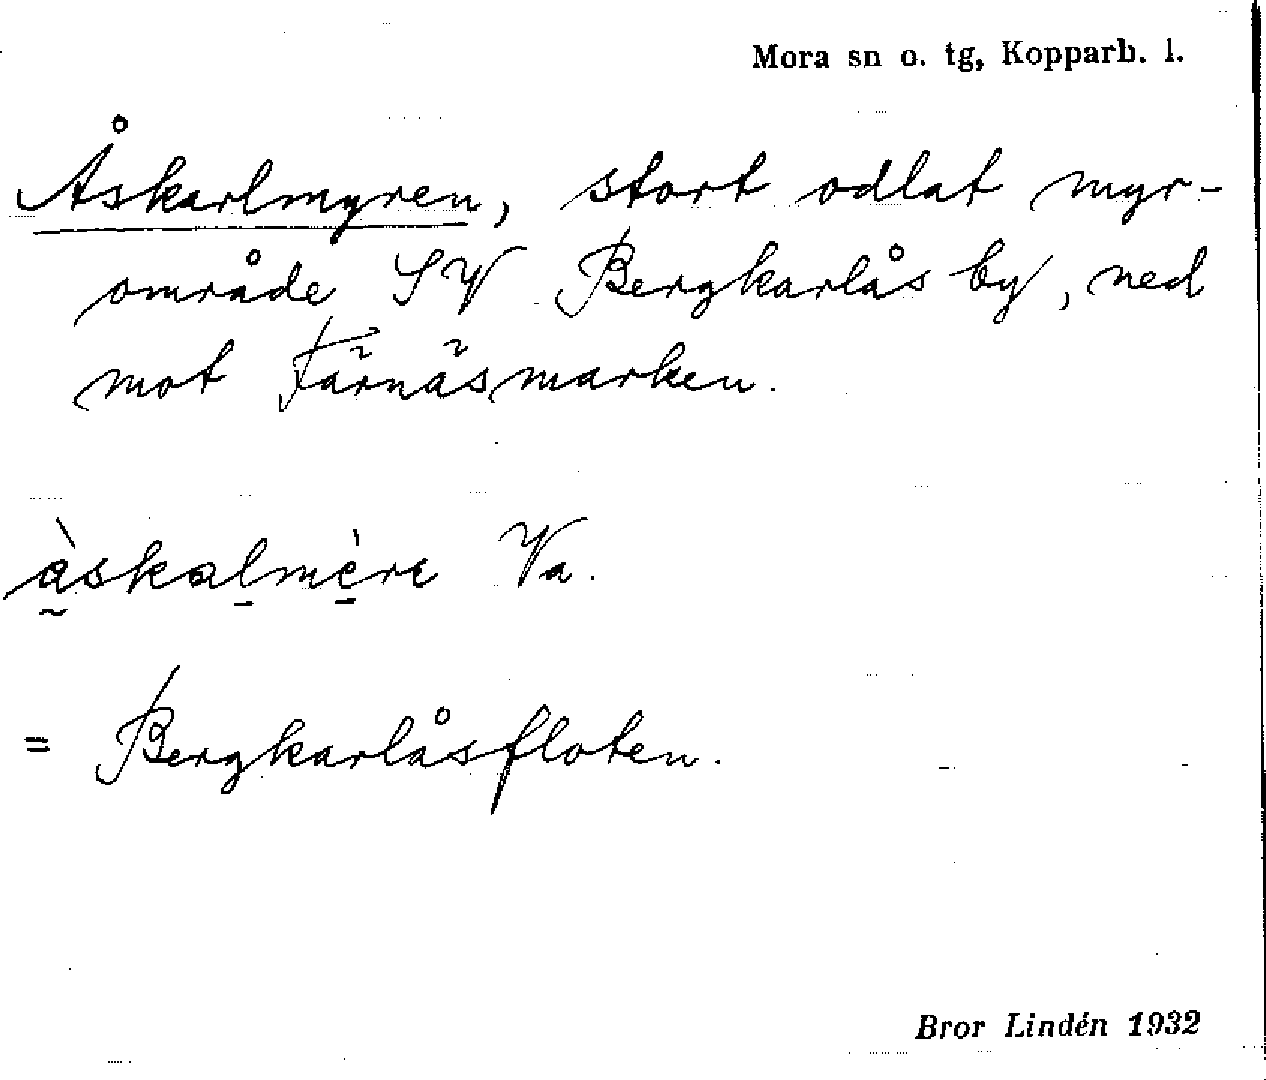 Mora sn o. tg, Kopparb. l.
Åskarlmyren, stort odlat myr-
område SV Bergkarlås by, ned
mot Färnäsmarken.
àskalmère Va.
= Bergkarlåsfloten.
Bror Lindén 1932